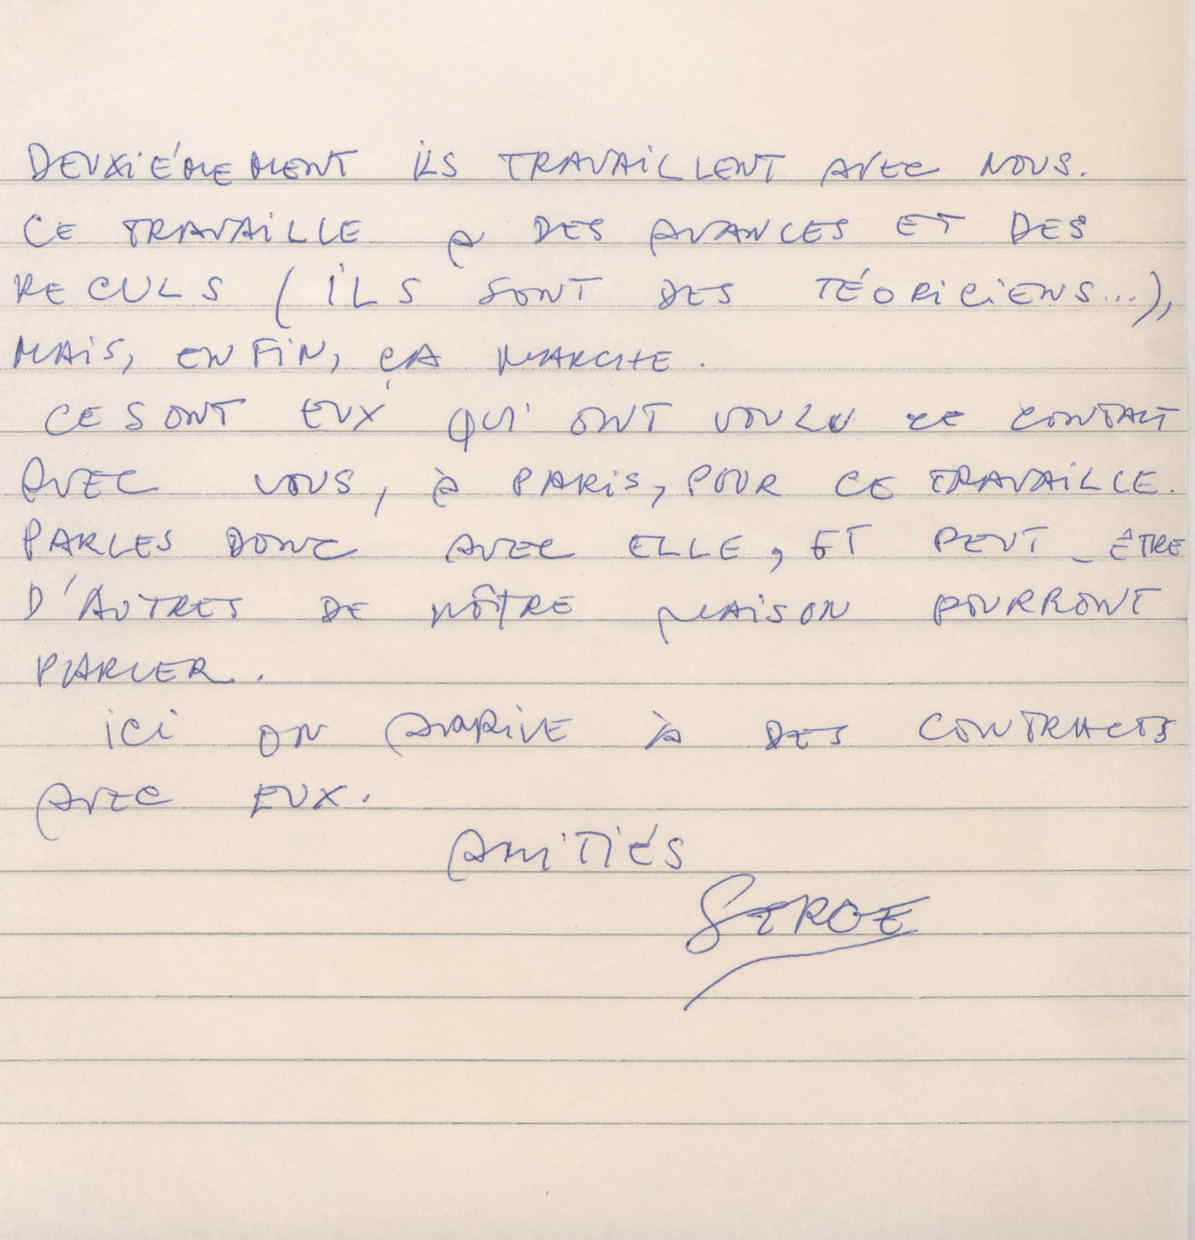 DEUXIÉMEMENT ILS TRAVAILLENT AVEC NOUS.
CE TRAVAILLE A DES AVANCES ET DES
RECULS (ILS SONT DES TÉORICIENS...),
MAIS, ENFIN, ÇA MARCHE.
CE SONT EUX QUI ONT VOULU CE CONTACT
AVEC VOUS, À PARIS, POUR CE TRAVAILLE.
PARLES DONC AVEC ELLE, ET PEUT-ÊTRE
D'AUTRES DE NÔTRE MAISON POURRONT
PARLER.
ICI ON ARRIVE À DES CONTRACTS
AVEC EUX.
AMITIÉS
SERGE